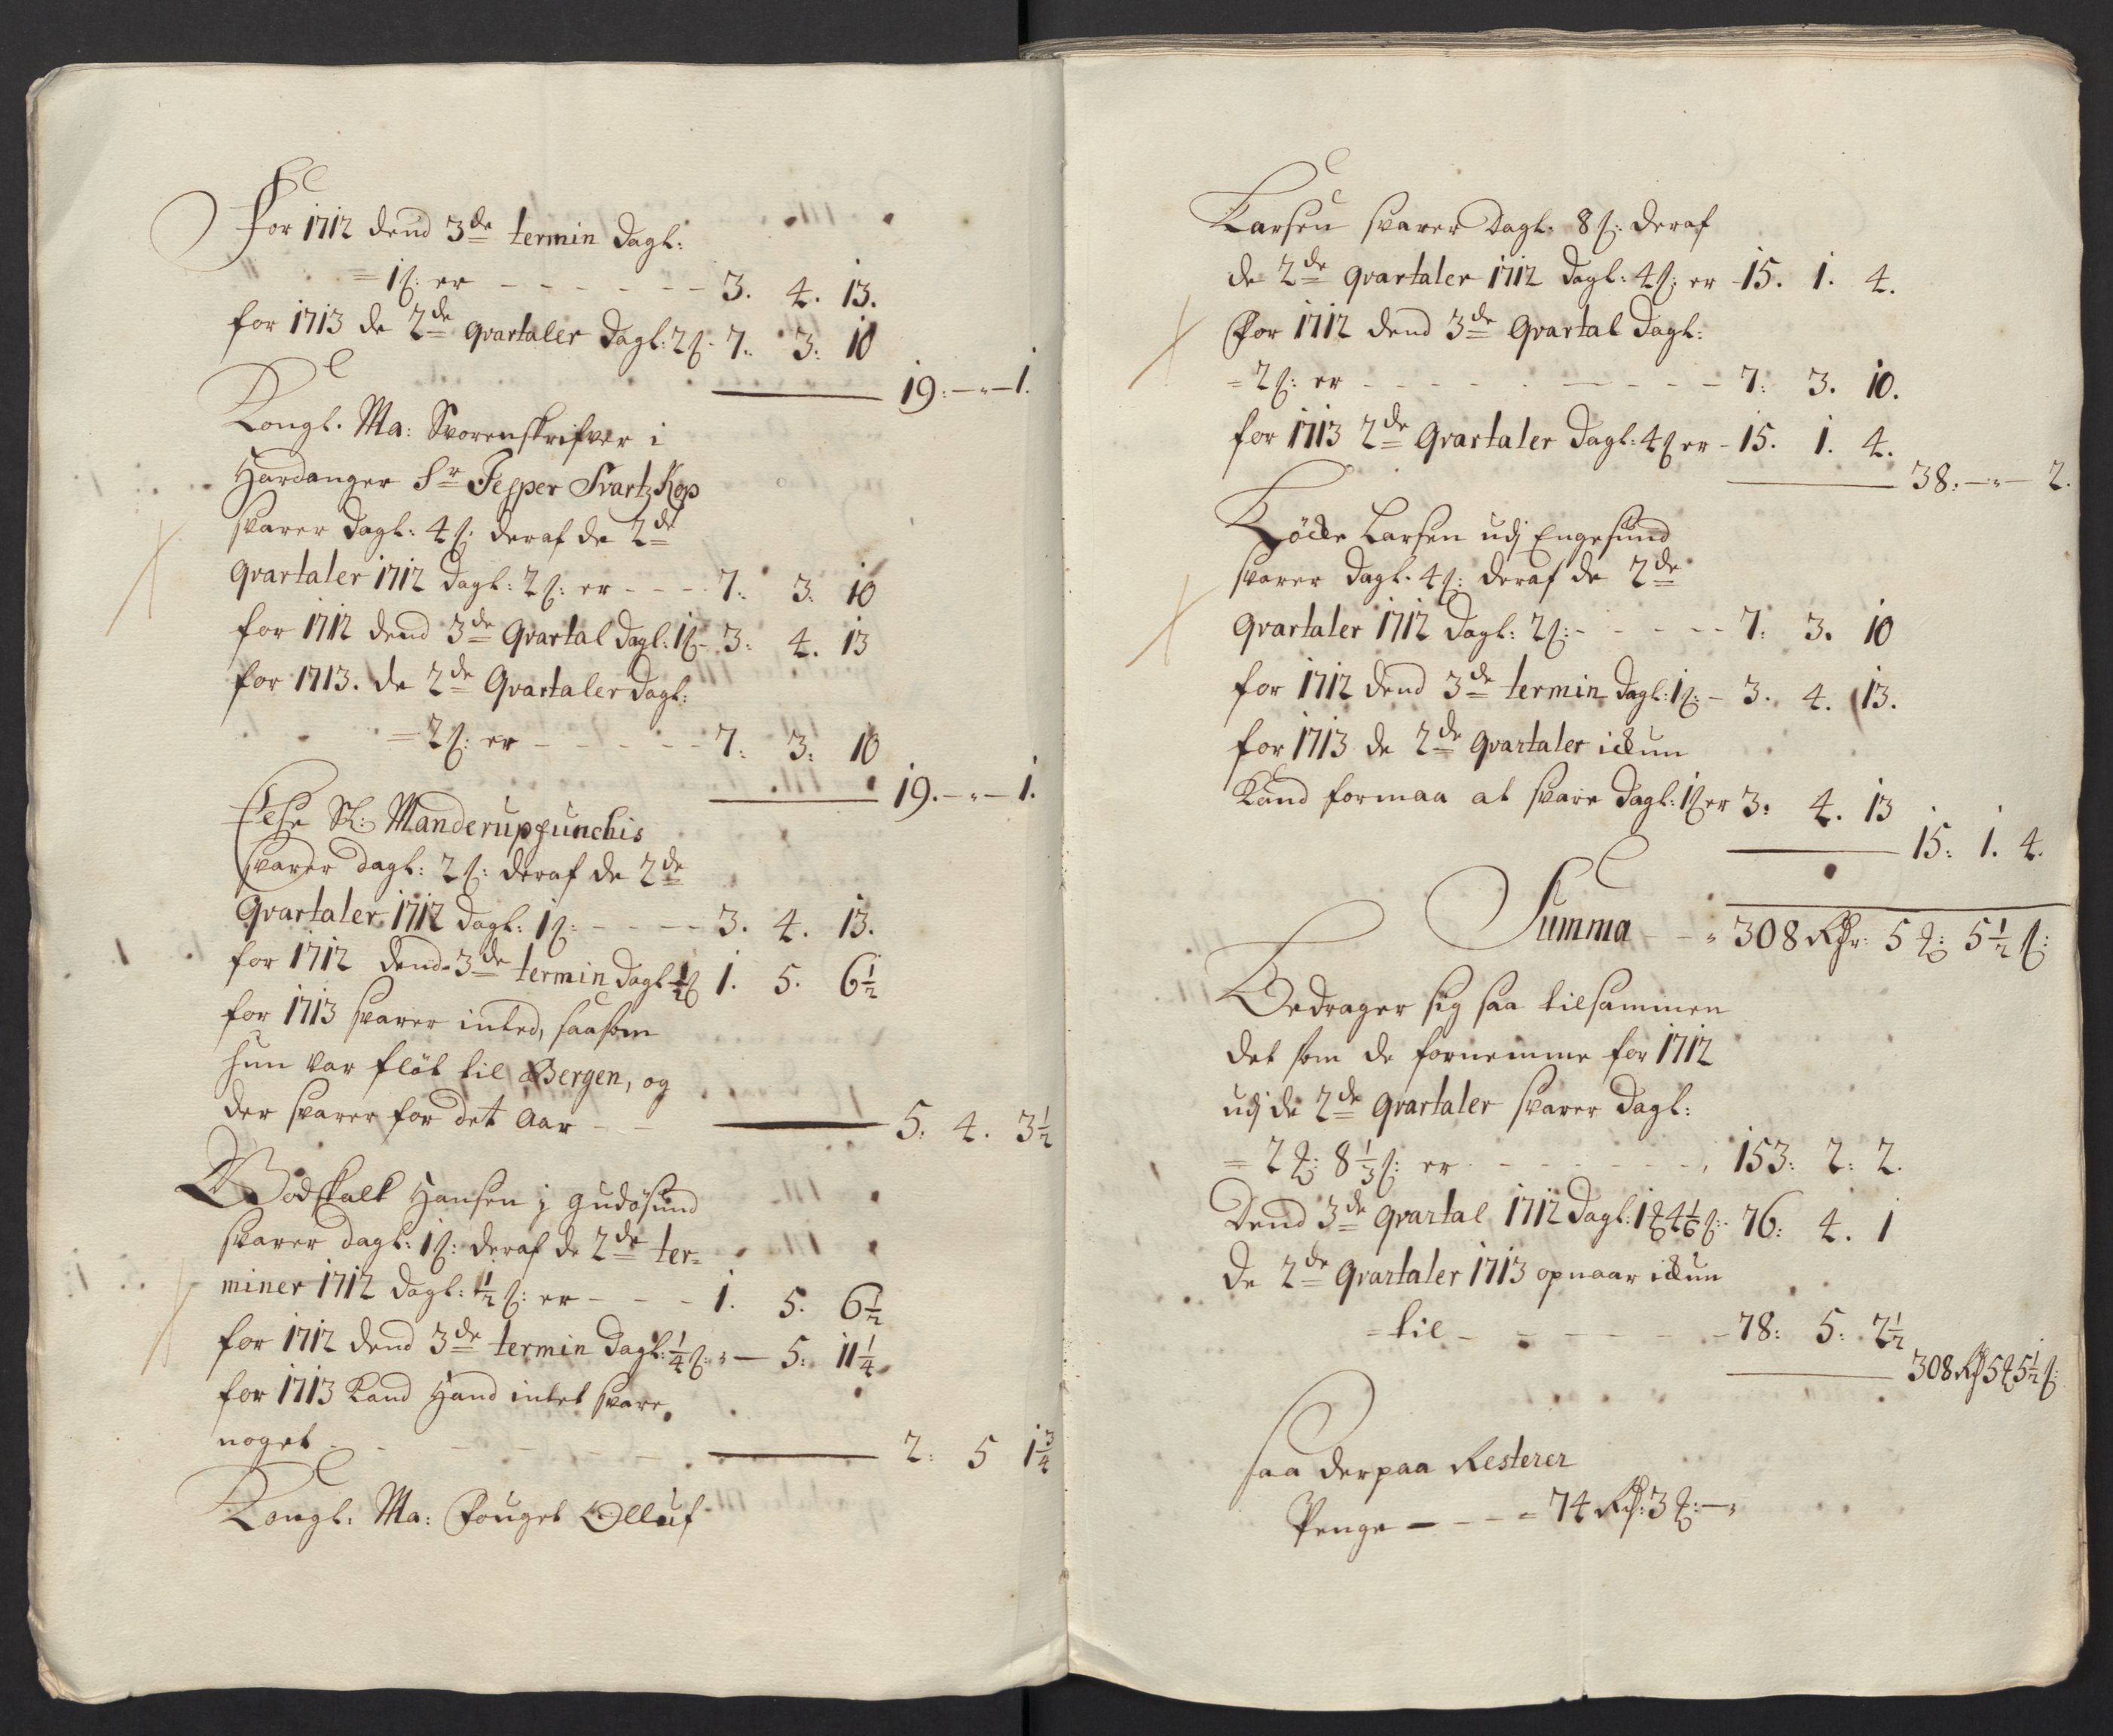 For 1712 dend 3de termin dagl:
= 1 s: er - - - - - - - 3. 4. 13.
for 1713 de 2de qvartaler dagl: 2 s - 7: 3: 10
19: - " - 1.
Kongl. Ma: Svorenskrifver i
Hardanger Sr Jesper Svartz Kop
svarer dagl: 4 s: deraf de 2de
qvartaler 1712 dagl: 2 s: er - - - - 7: 3: 10
for 1712 dend 3de Qvartal dagl: 1 s - 3: 4. 13
for 1713. de 2de Qvartaler dagl:
= 2 s: er - - - - - - 7: 3: 10
19. - " - 1.
Sl: Manderup punchis
svarer dagl: 2 s: deraf de 2de
Qvartaler 1712 dagl: 1 s: - - - - 3. 4. 13.
for 1712 dend 3de termin dagl ½ s 1. 5. 6½
for 1713 svarer inted, saasom
hun var fløt til Bergen, og
der svarer for det aar - - 5: 4. 3½
Bodskalt Hansen i gudøsund
svarer dagl: 1 s: deraf de 2de ter=
miner 1712 dagl: ½ s: er - - - 1. 5. 6½
for 1712 dend 3de termin dagl: ¼ s: " - 5: 11¼
for 1713 kand Hand intet svare
noget - - - - - - 2: 5 1¾
Kongl: Ma: Fouget Olluf
Larsen svarer dagl. 8 s: deraf
de 2de qvartaler 1712 dagl: 4 s: er - 15. 1. 4.
For 1712 dend 3de Qvartal dagl:
= 2 s: er - - - - - - - - - 7: 3. 10.
for 1713 2de Qvartaler dagl: 4 s er - 15. 1. 4.
38: - " - 2.
Larsen udj Engesund
svarer dagl. 4 s: deraf de 2de
qvartaler 1712 dagl: 2 s: - - - - - 7: 3. 10
for 1712 dend 3de termin dagl: 1 s: - 3. 4. 13.
for 1713 de 2de qvartaler ickun
kand formaa at svare dagl: 1 s er 3: 4. 13
15: 1. 4.
Summa - - " 308 Rdr: 5 ℔: 5½ s:
Bedrager sig saa tilsammen
det som de fornemme for 1712
udj de 2de qvartaler svarer dagl:
= 2 ℔: 8⅓ s: er - - - - - - - 153: 2: 2.
Dend 3de qvartal 1712 dagl: 1 ℔ 4⅙ s: - 76: 4. 1
De 2de Qvartaler 1713 opnaar ickun
= til - - - - - - - 78: 5: 2½
308 Rd 5 ℔ 5½ s:
saa derpaa Resterer
Penge - - - = 74 Rd: 3 ℔: - "